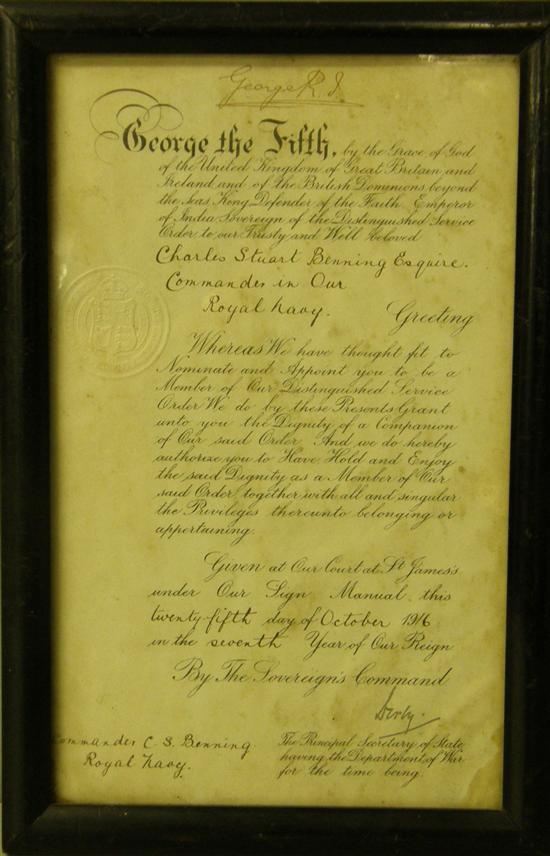 George R. I.
George the Fifth, by the Grace of God
of the United Kingdom of Great Britain and
Ireland and of the British Dominions beyond
the Seas King Defender of the Faith Emperor
of India Sovereign of the Distinguished Service
Order to our Trusty and Well beloved
Charles Stuart Benning Esquire.
Commander in Our
Royal Navy. Greeting
Whereas We have thought fit to
Nominate and Appoint you to be a
Member of Our Distinguished Service
Order We do by these Presents Grant
unto you the Dignity of a Companion
of Our said Order And we do hereby
authorize you to Have Hold and Enjoy
the said Dignity as a Member of Our
said Order, together with all and singular
the Privileges thereunto belonging or
appertaining.
Given at Our Court at St James's
under Our Sign Manual this
twenty fifth day of October 1916
in the seventh Year of Our Reign
By The Sovereign's Command
Derby.
Commander C. S. Benning
Royal Navy.
The Principal Secretary of State
having the Department of War
for the time being.